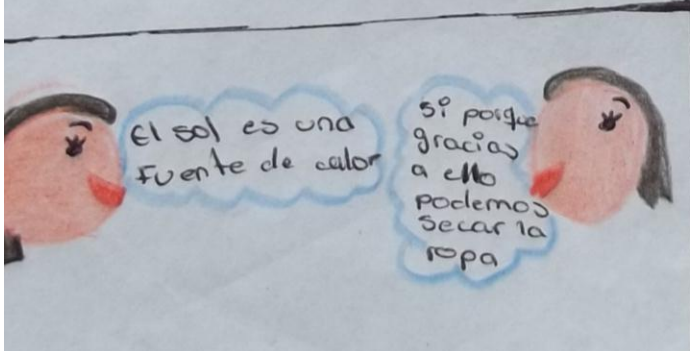 El sol es una
fuente de calor
si porque
gracias
a ello
podemos
secar la
ropa